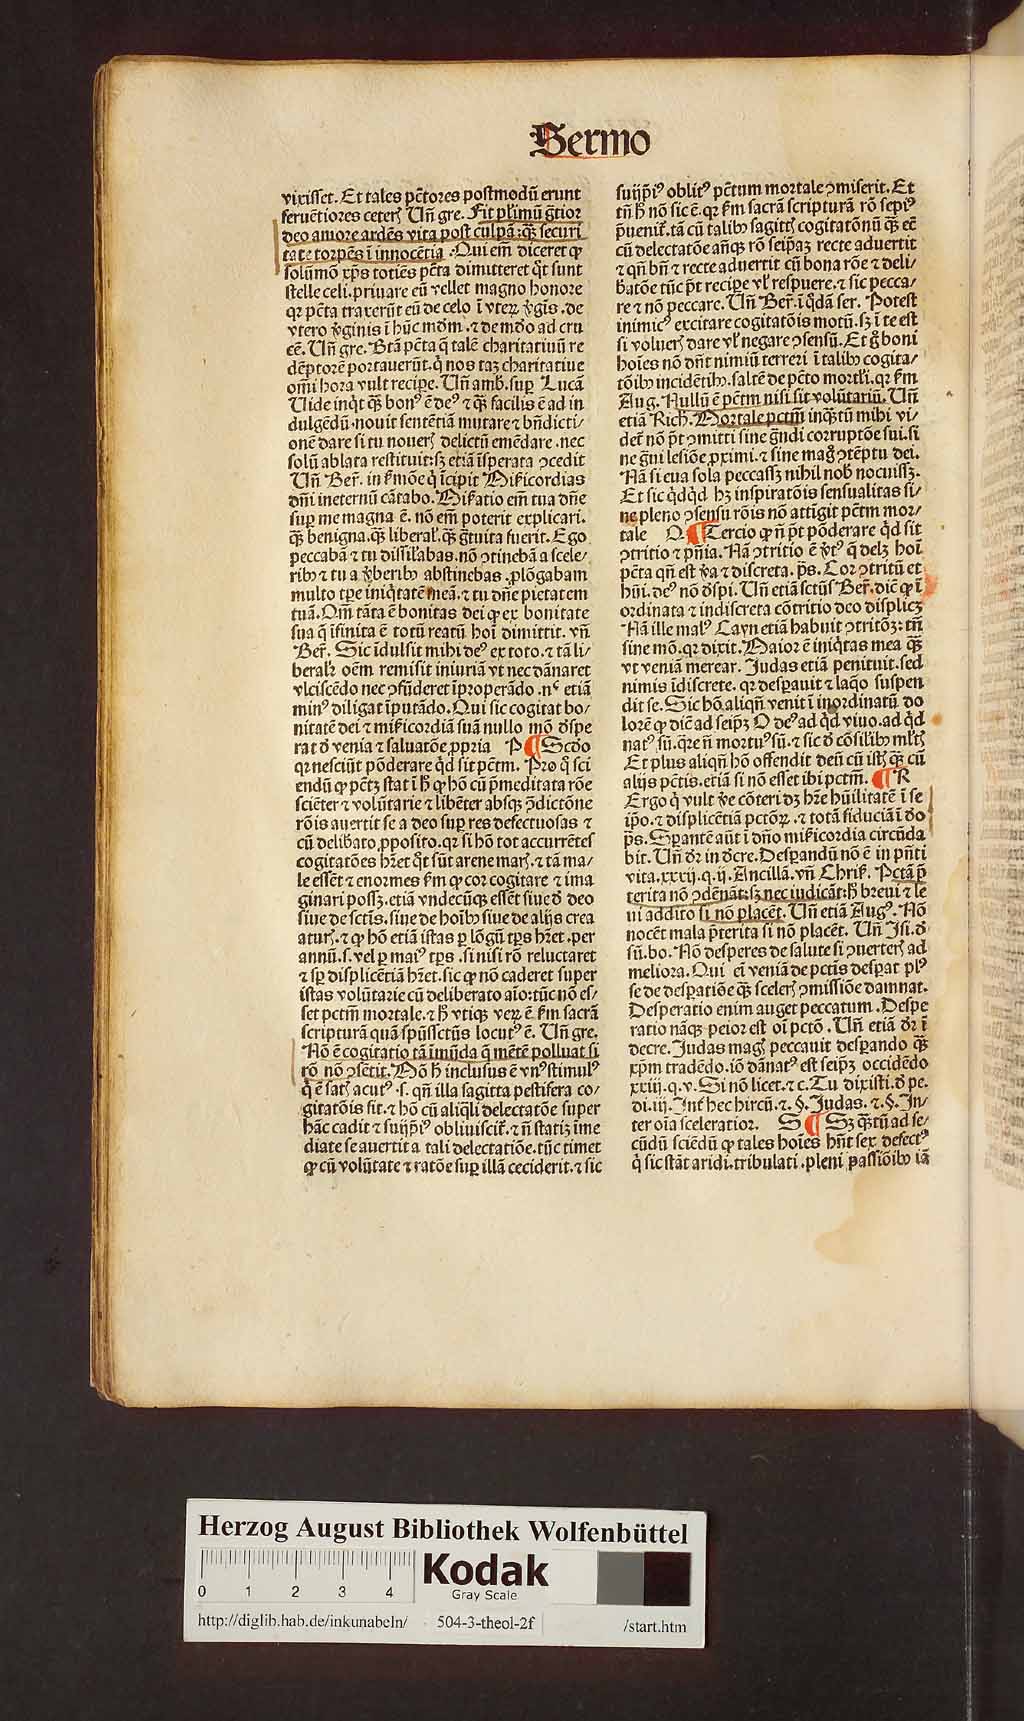 Sermo
vixisset. Et tales pc̄tores postmodū erunt
feruētiores ceteꝝ Uñ gre. Fit plimū g̃tior
deo amore ardēs vita post culpā: qꝫ securi
tate torpēs ī innocētia. Qui em̄ diceret ꝙ
solūmō xp̄s totiēs pc̄ta dimitteret q̇t sunt
stelle celi. priuare eū vellet magno honore
qꝛ pc̄ta traxerūt eū de celo ī vteꝝ v̓gīs. de
vtero v̓ginis ī hūc mūm. ⁊ de mūo ad cru
cē. Uñ gre. Btā pc̄ta q̄ talē charitatiuū re
dēptorē portauerūt. q̇ nos taꝫ charitatiue
om̄i hora vult recipe. Uñ amb. sup Lucā
Uide inq̇t qꝫ bonꝰ ē deꝰ ⁊ qꝫ facilis ē ad in
dulgēdū. nouit sentētiā mutare ⁊ bn̄dicti-
onē dare si tu noueꝝ delictū emēdare. nec
solū ablata restituit: sꝫ etiā īsperata ↄcedit
Uñ Ber. in sermōe q̇ īcipit Misericordias
dn̄i ineternū cātabo. Miseratio em̄ tua dn̄e
sup me magna ē. nō em̄ poterit explicari.
qꝫ benigna. qꝫ liberal. qꝫ g̃tuita fuerit. Ego
peccabā ⁊ tu dissilabas. nō ↄtinebā a scele-
ribꝫ ⁊ tu a v̓beribꝫ abstinebas. plōgabam
multo tpe iniq̇tatē meā. ⁊ tu dn̄e pietatem
tuā. Om̄ tāta ē bonitas dei ꝙ ex bonitate
sua q̄ ifinita ē totū reatū hoī dimittit. vñ
Ber. Sic īdulsit mihi deꝰ ex toto. ⁊ tā li-
beralꝝ oēm remisit iniuriā vt nec dānaret
vlciscēdo nec ↄfūderet īproperādo. nec etiā
minꝰ diligat īputādo. Qui sic cogitat bo-
nitatē dei ⁊ misericordiā suā nullo mō d̓spe
rat d̓ venia ⁊ saluatōe ꝓpria P ¶ Scd̓o
qꝛ nesciūt pōderare q̇d sit pc̄tm. Pro q̇ sci
endū ꝙ pc̄tꝫ stat ī h̓ ꝙ hō cū p̄meditata rōe
sciēter ⁊ volūtarie ⁊ libēter absqꝫ ↄ̄dictōne
rōis auertit se a deo sup res defectuosas ⁊
cū delibato ꝓposito. qꝛ si hō tot accurrētes
cogitatōes hr̄et q̇t sūt arene mar. ⁊ tā ma-
le essēt ⁊ enormes sm̄ ꝙ cor cogitare ⁊ ima
ginari possꝫ. etiā vndecūqꝫ essēt siue d̓ deo
siue de sctīs. siue de hoībꝫ siue de alijs crea
aturꝭ. ⁊ ꝙ hō etiā istas p lōgū tp̄s hr̄et. per
annū. s. vel p maiꝰ tp̄s. si nisi rō reluctaret
⁊ sp displicētiā hr̄et. sic ꝙ nō caderet super
istas volūtarie cū deliberato aīo: tūc nō es-
set pctm̄ mortale. ⁊ h̓ vtiqꝫ veꝝ ē sm̄ sacrā
scripturā quā spūssctūs locutꝰ ē. Uñ gre.
Nō ē cogitatio tā īmūda q̄ mētē polluat si
rō nō ↄsētit. Nō h̓ inclusus ē vnꝰ stimulꝰ
q̇ ē satꝭ acutꝰ .s. qn̄ illa sagitta pestifera co-
gitatōis fit. ⁊ hō cū aliq̄li delectatōe super
hāc cadit ⁊ suijpiꝰ obliuiscit. ⁊ n̄ statiꝫ īme
diate se auertit a tali delectatiōe. tūc timet
ꝙ cū volūtate ⁊ ratōe sup illā ceciderit. ⁊ sic
suijpiꝰ oblitꝰ pc̄tum mortale ↄmiserit. Et
tn̄ h̓ nō sic ē. qꝛ sm̄ sacrā scripturā rō sepiꝰ
p̄uenit. tā cū talibꝫ sagittꝭ cogitatōnū qꝫ eē
cū delectatōe an̄qꝫ rō seipaꝫ recte aduertit
⁊ qn̄ bn̄ ⁊ recte aduertit cū bona rōe ⁊ deli-
batōe tūc p̄t recipe vl respuere. ⁊ sic pecca-
re ⁊ nō peccare. Uñ Ber. ī q̇dā ser. Potest
inimicꝰ excitare cogitatōis motū. sꝫ ī te est
si volueꝝ dare vl negare ↄsensū. Et g̊ boni
hoīes nō dn̄t nimiū terreri ī talibꝫ cogita-
tōibꝫ incidētibꝫ. saltē de pc̄to mortli. qꝛ sm̄
Aug. Nullū ē pc̄tm nisi sit volūtariū. Uñ
etiā Rich. Mortale pctm̄ inqꝫtū mihi vi-
det nō p̄t ↄmitti sine g̃ndi corruptōe sui. si
ne g̃ui lesiōe ꝓximi. ⁊ sine mag̊ ↄtēptu dei.
Nā si eua sola peccassꝫ nihil nob nocuissꝫ.
Et sic q̇dq̇d hꝫ inspiratōis sensualitas si-
ne pleno ↄsensu rōis nō attigit pctm̄ mor-
tale Q. ¶ Tercio ꝙ n̄ p̄t pōderare q̇d sit
ↄtritio ⁊ pn̄ia. Nā ↄtritio ē v̓tꝰ q̄ delꝫ hoī
pc̄ta qn̄ est v̓a ⁊ discreta. ps. Cor ↄtritū et
hūi. deꝰ nō d̓spi. Uñ etiā sctūs Ber. dic̄ ꝙ ī
ordinata ⁊ indiscreta cōtritio deo displicꝫ
Nā ille malꝰ Cayn etiā habuit ↄtritōꝫ: tn̄
sine mō. qꝛ dixit. Maior ē iniq̇tas mea qꝫ
vt veniā merear. Judas etiā penituit. sed
nimis īdiscrete. qꝛ despauit ⁊ laq̊o suspen
dit se. Sic hō aliqn̄ venit ī inordinatū do
lorē ꝙ dic̄ ad seipꝫ O deꝰ ad q̇d viuo. ad q̇d
natꝰ sū. q̄re n̄ mortuꝰ sū. ⁊ sic d̓ cōsilibꝫ mltꝭ
Et plus aliqn̄ hō offendit deū cū istꝭ qꝫ cū
alijs pc̄tis. etiā si nō esset ibi pctm̄. ¶ R
Ergo q̇ vult v̓e cōteri dꝫ hr̄e hūilitatē ī se
ip̄o. ⁊ displicētiā pctōꝝ. ⁊ totā fiduciā ī d̓o
ps. Spantē aūt ī dn̄o misericordia circūda
bit. Uñ dr in decre. Despandū nō ē in pn̄ti
vita. xxxij. q. ij. Ancillā. vñ Chris. Pctā p̄
terita nō ↄdēnāt: sꝫ nec iudicāt: h̓ breui ⁊ le
ui addito si nō placēt. Uñ etiā Augꝰ. Nō
nocēt mala p̄terita si nō placēt. Uñ Isi. d̓
sū. bo. Nō desperes de salute si ↄuerteꝝ ad
meliora. Qui eī veniā de pctīs despat plꝰ
se de despatiōe qꝫ sceleꝝ ↄmissiōe damnat.
Desperatio enim auget peccatum. Despe
ratio nāqꝫ peior est oī pctō. Uñ etiā dr ī
decre. Judas magꝭ peccauit despando qꝫ
xp̄m tradēdo. iō dānatꝰ est seipꝫ occidēdo
xxiij. q. v. Si nō licet. ⁊ c. Tu dixisti. d̓ pe.
di. iij. Int hec hircū. ⁊. §. Judas. ⁊. §. In-
ter oīa sceleratior. S ¶ Sꝫ qꝫtū ad se-
cūdū sciēdū ꝙ tales hoīes hn̄t sex defectꝰ
q̇ sic stāt aridi. tribulati. pleni passiōibꝫ iā
Herzog August Bibliothek Wolfenbüttel
0 1 2 3 4
Kodak
Gray Scale
http://diglib.hab.de/inkunabeln/ 504-3-theol-2f /start.htm